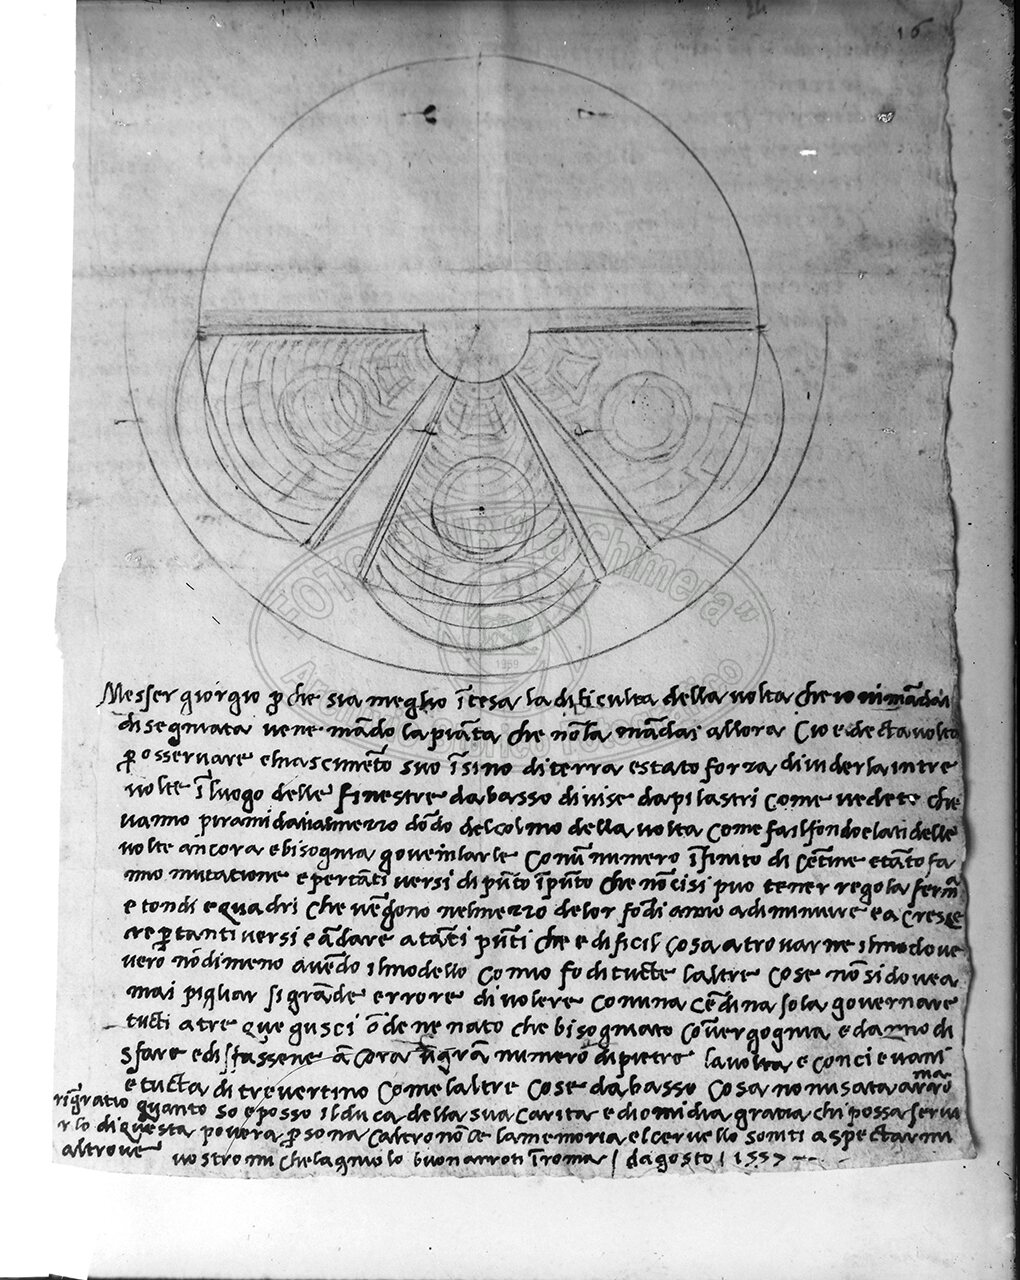 16
Messer giorgio p che sia meglio ītesa la dificulta della volta che io vi mādai
disegniata vene mādo la piāta che nō la mādai allora cioe decta volta
p osservare el nascimēto suo īsino di terra e stato forza diuiderla in tre
volte ī luogo delle finestre da basso divise da pilastri come vedete che
vanno piramidati īmezzo dētro del colmo della volta come fa il fondo e lati delle
volte ancora e bisognia governarle con ū numero īfinito di cētine e tāto fa
nno mutatione e per tāti versi di pūto ī pūto che nō ci si puo tener regola ferma
e tondi e quadri che vēgono nel mezzo de lor fōdi āno a diminuire e a cresce
re p tanti versi e ādare a tāti pūti che e dificil cosa a trovarne il modo ve
vero nōdimeno avēdo il modello como fo di tucte laltre cose nō si dovea
mai pigliar si grāde errore di volere con una cētina sola governare
tucti a tre que gusci ōde ne nato che bisogniato cō vergognia e danno di
sfare e disfassene ācora ū grā numero di pietre la volta e conci e vani
e tucta di trevertino come laltre cose da basso cosa non usata a roma
rigratio quanto so e posso il duca della sua carita e dio mi dia gratia chi possa servi
rlo di questa povera psona caltro nō ce la memoria el cervello sō iti aspectarmi
altrove vostro michelagniolo buonarroti ī roma / dagosto 1557
FOTO CLUB "La Chimera"
1959